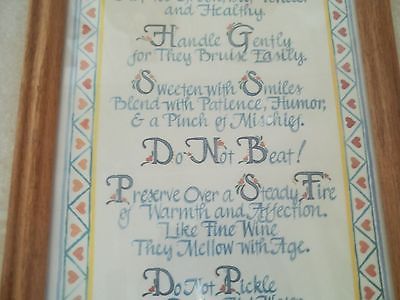 and Healthy.
Handle Gently
for They Bruise Easily.
Sweeten with Smiles
Blend with Patience, Humor,
& a Pinch of Mischief.
Do Not Beat!
Preserve Over a Steady Fire
of Warmth and Affection.
Like Fine Wine
They Mellow with Age.
Do Not Pickle